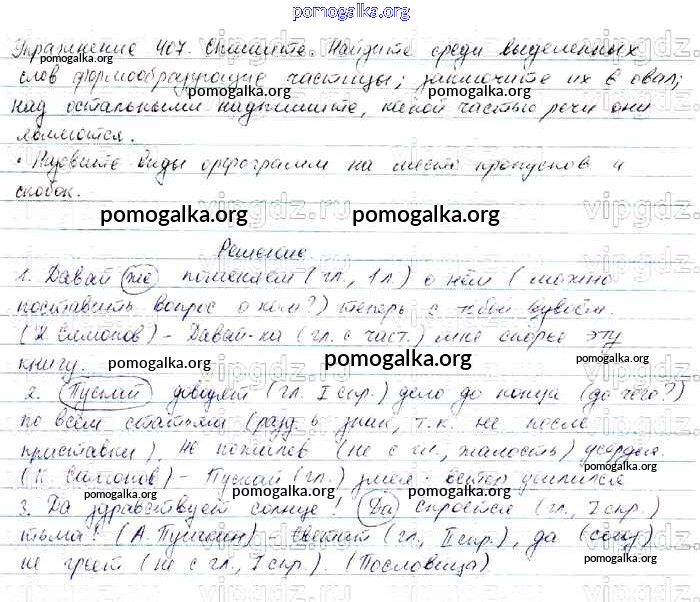 pomogalka.org
Упражнение 407. Спишите. Найдите среди выделенных
слов формообразующие частицы; заключите их в овал;
pomogalka.org
над остальными надпишите, какой частью речи они
являются.
• Назовите виды орфограмм на месте пропусков и
скобок.
pomogalka.org pomogalka.org
Решение.
1. Давай же помечтаем (гл., 1 л.) о нём (можно
pomogalka.org pomogalka.org
поставить вопрос о ком?) теперь с тобой вдвоём.
(К. Симонов) – Давай-ка (гл. с част.) мне скорее эту
книгу.
pomogalka.org pomogalka.org pomogalka.org
2. Пускай доведут (гл. I спр.) дело до конца (до чего?)
pomogalka.org
по всем статьям (разд. ь знак, т.к. не после
pomogalka.org
приставки), не пожалев (не с гл., жалость) усердья.
(К. Симонов) – Пускай (гл.) змея - ветер усилился
pomogalka.org pomogalka.org pomogalka.org
3. Да здравствует солнце! Да скроется (гл., I спр.)
тьма! (А. Пушкин) Светит (гл., II спр.), да (союз)
pomogalka.org pomogalka.org
не греет (не с гл., I спр.). (Пословица)
vipgdz.ru